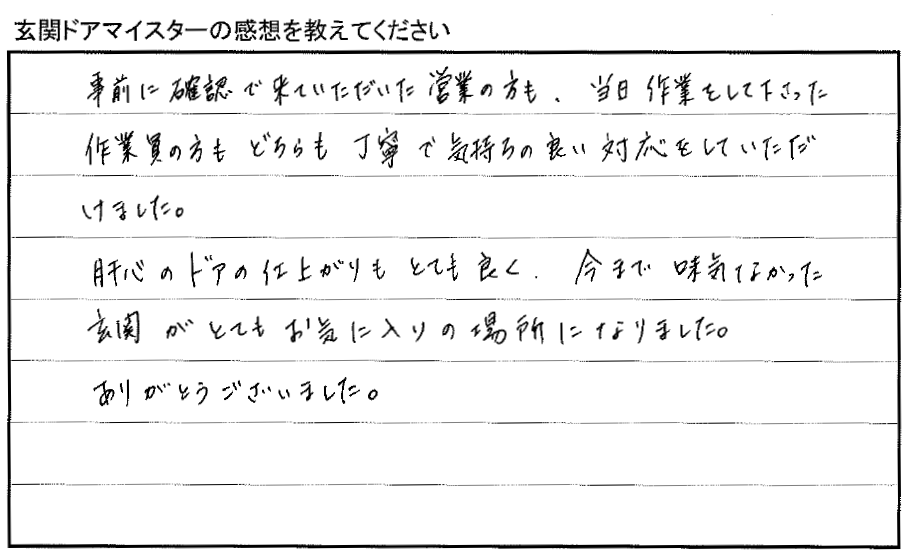 玄関ドアマイスターの感想を教えてください
事前に確認で来ていただいた営業の方も、当日作業をして下さった
作業員の方もどちらも丁寧で気持ちの良い対応をしていただ
けました。
肝心のドアの仕上がりもとても良く、今まで味気なかった
玄関がとてもお気に入りの場所になりました。
ありがとうございました。